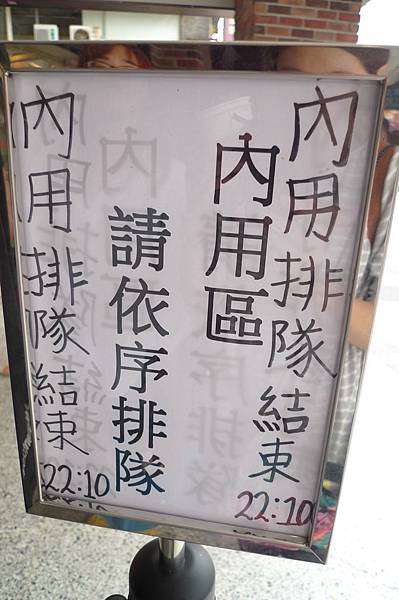 內用排隊結束
22:10
內用區
請依序排隊
內用排隊結束
22:10